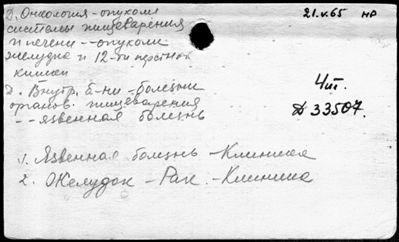 2. Онкология - опухоли
системы пищеварения
и печени -- опухоли
желудка и 12-ти перстной
кишки
2. Внутр. б-ни - болезни
органов. пищеварения
-- язвенная болезнь
21.V.65 НР
4т.
Д 33507.
1. Язвенная болезнь - Клиника
2. Желудок - Рак. - Клиника